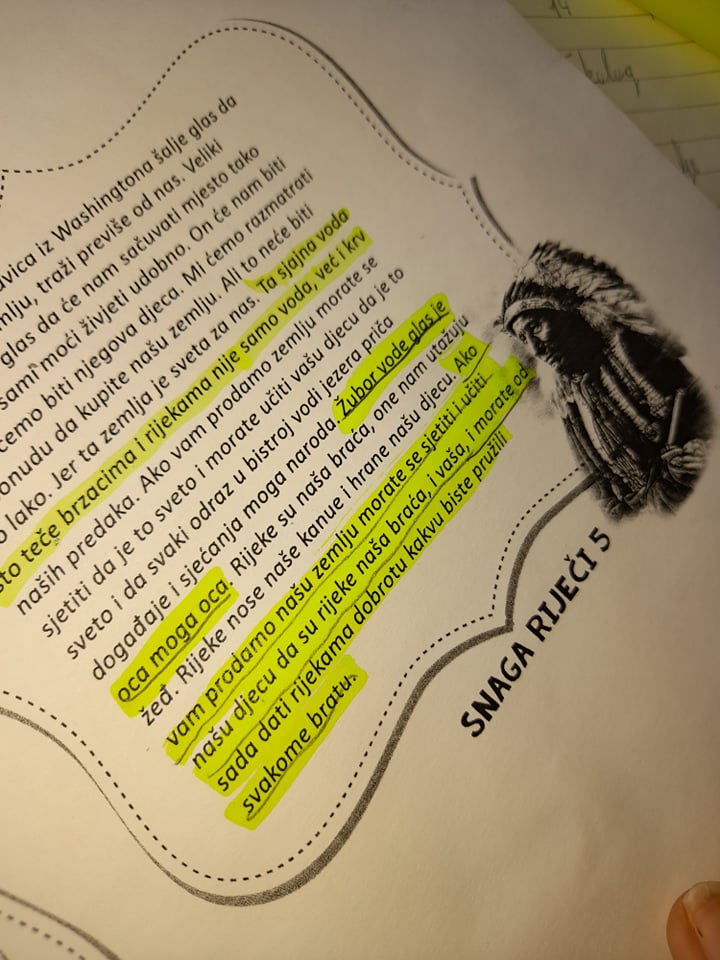 vica iz Washingtona šalje glas da
mlju, traži previše od nas. Veliki
glas da će nam sačuvati mjesto tako
sami moći živjeti udobno. On će nam biti
ćemo biti njegova djeca. Mi ćemo razmatrati
onudu da kupite našu zemlju. Ali to neće biti
o lako. Jer ta zemlja je sveta za nas. Ta sjajna voda
što teče brzacima i rijekama nije samo voda, već i krv
naših predaka. Ako vam prodamo zemlju morate se
sjetiti da je to sveto i morate učiti vašu djecu da je to
sveto i da svaki odraz u bistroj vodi jezera priča
događaje i sjećanja moga naroda. Žubor vode glas je
oca moga oca. Rijeke su naša braća, one nam utažuju
žeđ. Rijeke nose naše kanue i hrane našu djecu. Ako
vam prodamo našu zemlju morate se sjetiti i učiti
našu djecu da su rijeke naša braća, i vaša, i morate od
sada dati rijekama dobrotu kakvu biste pružili
svakome bratu.
SNAGA RIJEČI 5
14